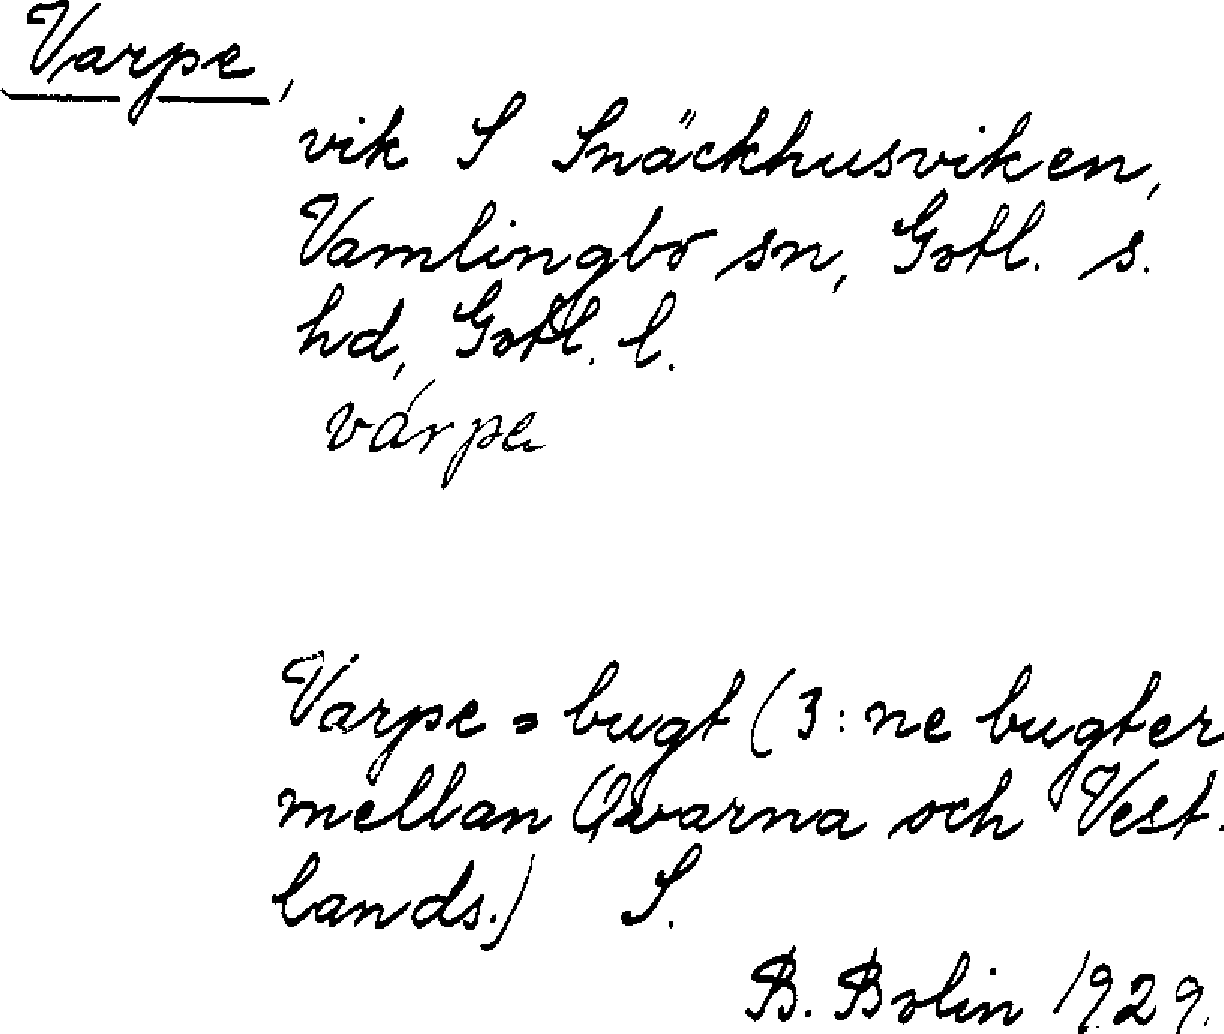 Varpe,
vik S Snäckhusviken,
Vamlingbo sn, Gotl. s.
hd, Gotl. l.
várpe
Varpe = bugt (3:ne bugter
mellan Qvarna och Vest.
lands.) S.
B. Bolin 1929.